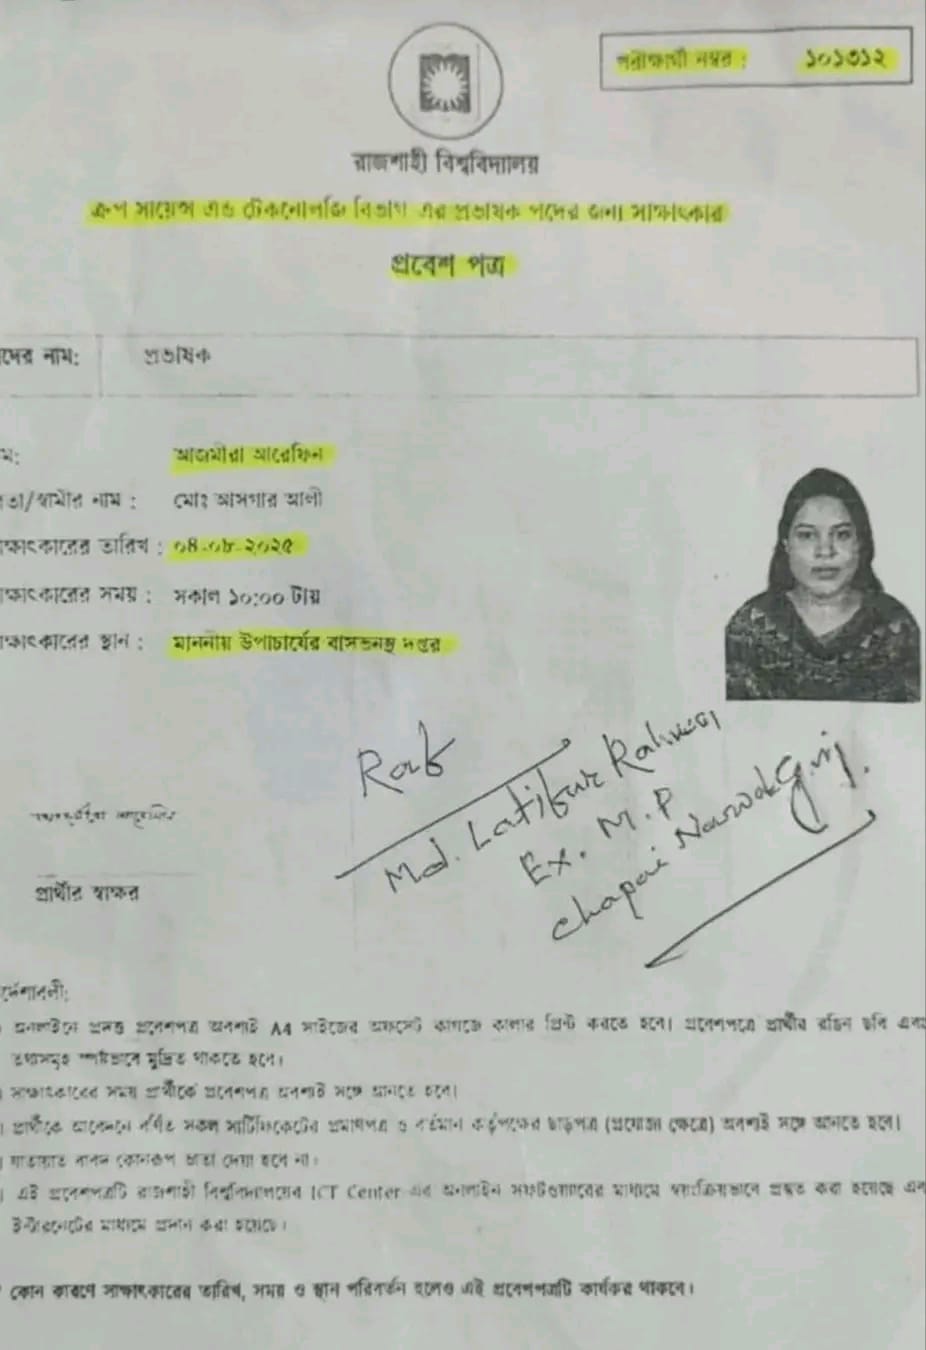 পরীক্ষার্থী নম্বর : ১০১৩১২
রাজশাহী বিশ্ববিদ্যালয়
ক্রপ সায়েন্স এন্ড টেকনোলজি বিভাগ এর প্রভাষক পদের জন্য সাক্ষাৎকার
প্রবেশ পত্র
দের নাম: প্রভাষক
ম: আজমীরা আরেফিন
তা/স্বামীর নাম : মোঃ আসগার আলী
ক্ষাৎকারের তারিখ : ০৪-০৮-২০২৫
ক্ষাৎকারের সময় : সকাল ১০:০০ টায়
ক্ষাৎকারের স্থান : মাননীয় উপাচার্যের বাসভনস্থ দপ্তর
Md. Latifur Rahman
Ex. M.P
Chapai Nawabgonj.
প্রার্থীর স্বাক্ষর
র্দেশাবলী:
অনলাইনে প্রদত্ত প্রবেশপত্র অবশ্যই A4 সাইজের অফসেট কাগজে কালার প্রিন্ট করতে হবে। প্রবেশপত্রে প্রার্থীর রঙিন ছবি এবং
তথ্যসমূহ স্পষ্টভাবে মুদ্রিত থাকতে হবে।
সাক্ষাৎকারের সময় প্রার্থীকে প্রবেশপত্র অবশ্যই সঙ্গে আনতে হবে।
প্রার্থীকে আবেদনে বর্ণিত সকল সার্টিফিকেটের প্রমাণপত্র ও বর্তমান কর্তৃপক্ষের ছাড়পত্র (প্রযোজ্য ক্ষেত্রে) অবশ্যই সঙ্গে আনতে হবে।
যাতায়াত বাবদ কোনরূপ ভাতা দেয়া হবে না।
এই প্রবেশপত্রটি রাজশাহী বিশ্ববিদ্যালয়ের ICT Center এর অনলাইন সফটওয়্যারের মাধ্যমে স্বয়ংক্রিয়ভাবে প্রস্তুত করা হয়েছে এবং
ইন্টারনেটের মাধ্যমে প্রদান করা হয়েছে।
কোন কারণে সাক্ষাৎকারের তারিখ, সময় ও স্থান পরিবর্তন হলেও এই প্রবেশপত্রটি কার্যকর থাকবে।